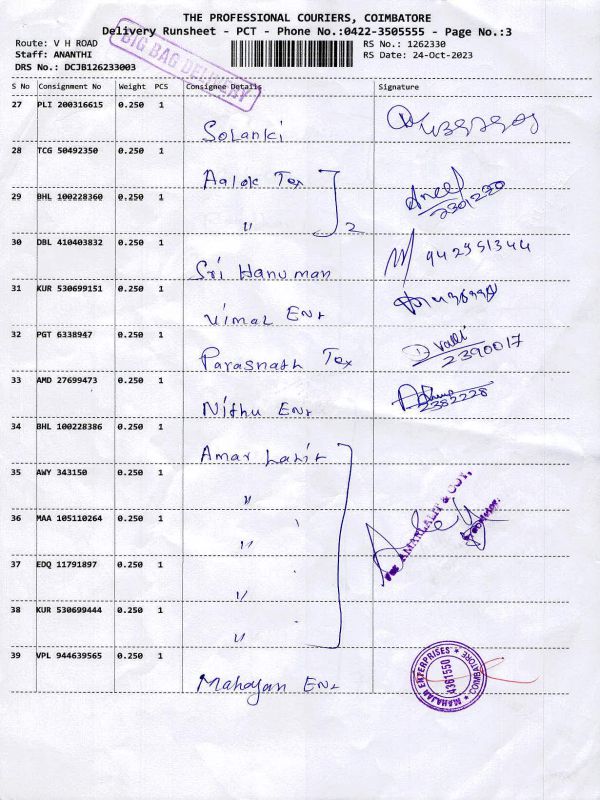 THE PROFESSIONAL COURIERS, COIMBATORE
Delivery Runsheet - PCT - Phone No.:0422-3505555 - Page No.:3
Route: V H ROAD
RS No.: 1262330
Staff: ANANTHI
RS Date: 24-Oct-2023
DRS No.: DCJB126233003
BIG BAG DELIVERY
S No Consignment No Weight PCS Consignee Details Signature
27 PLI 200316615 0.250 1
Solanki
28 TCG 50492350 0.250 1
Aalok Tex
29 BHL 100228360 0.250 1
" 2
2301220
30 DBL 410403832 0.250 1
Sri Hanuman
942951344
31 KUR 530699151 0.250 1
Vimal Enr
32 PGT 6338947 0.250 1
Parasnath Tex
D valli
2390017
33 AMD 27699473 0.250 1
Nithu Enr
2382228
34 BHL 100228386 0.250 1
Amar Lalit
35 AWY 343150 0.250 1
"
36 MAA 105110264 0.250 1
"
For AMARLALIT & COY,
37 EDQ 11791897 0.250 1
"
38 KUR 530699444 0.250 1
"
39 VPL 944639565 0.250 1
Mahajan Enr
MAHAJAN ENTERPRISES * COIMBATORE *
4361550